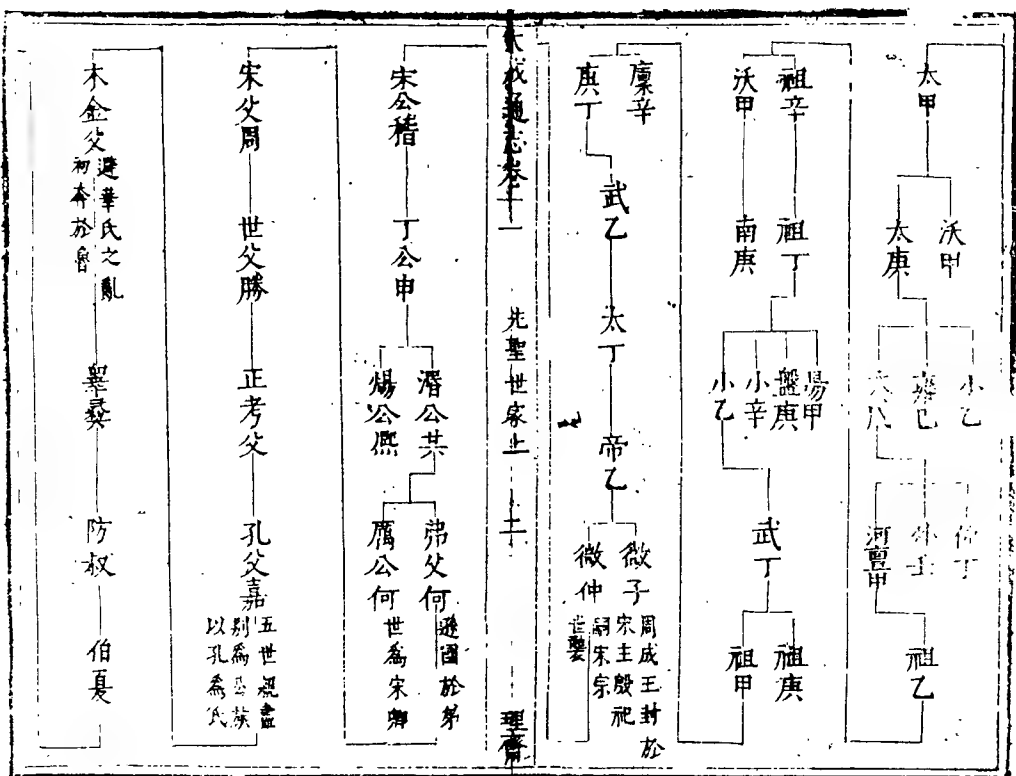 太甲
沃甲
太庚
小乙
雍己
仲丁
外壬
河亶甲
祖乙
祖辛
沃甲
祖丁
南庚
陽甲
盤庚
小辛
小乙
武丁
祖庚
祖甲
廩辛
庚丁
武乙
太丁
帝乙
微子
周成王封於
宋主殷祀
嗣宋宗
微仲
世襲
大成通志卷十一
先聖世家上
二
理齋
宋公稽
丁公申
湣公共
煬公熈
弗父何
遜國於弟
世爲宋卿
厲公何
宋父周
世父勝
正考父
孔父嘉
五世親盡
別爲公族
以孔爲氏
木金父
避華氏之亂
初奔於魯
睪彛
防叔
伯夏